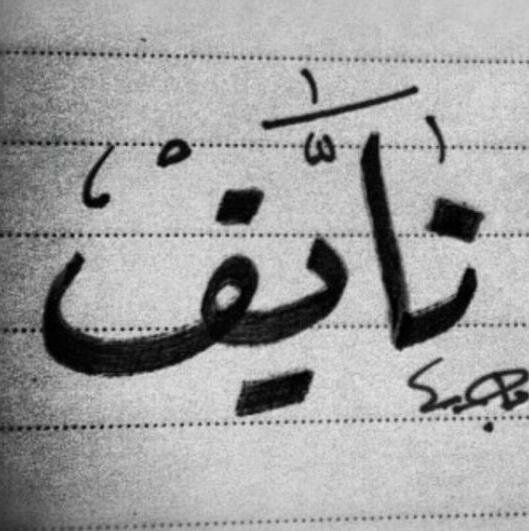 نايف